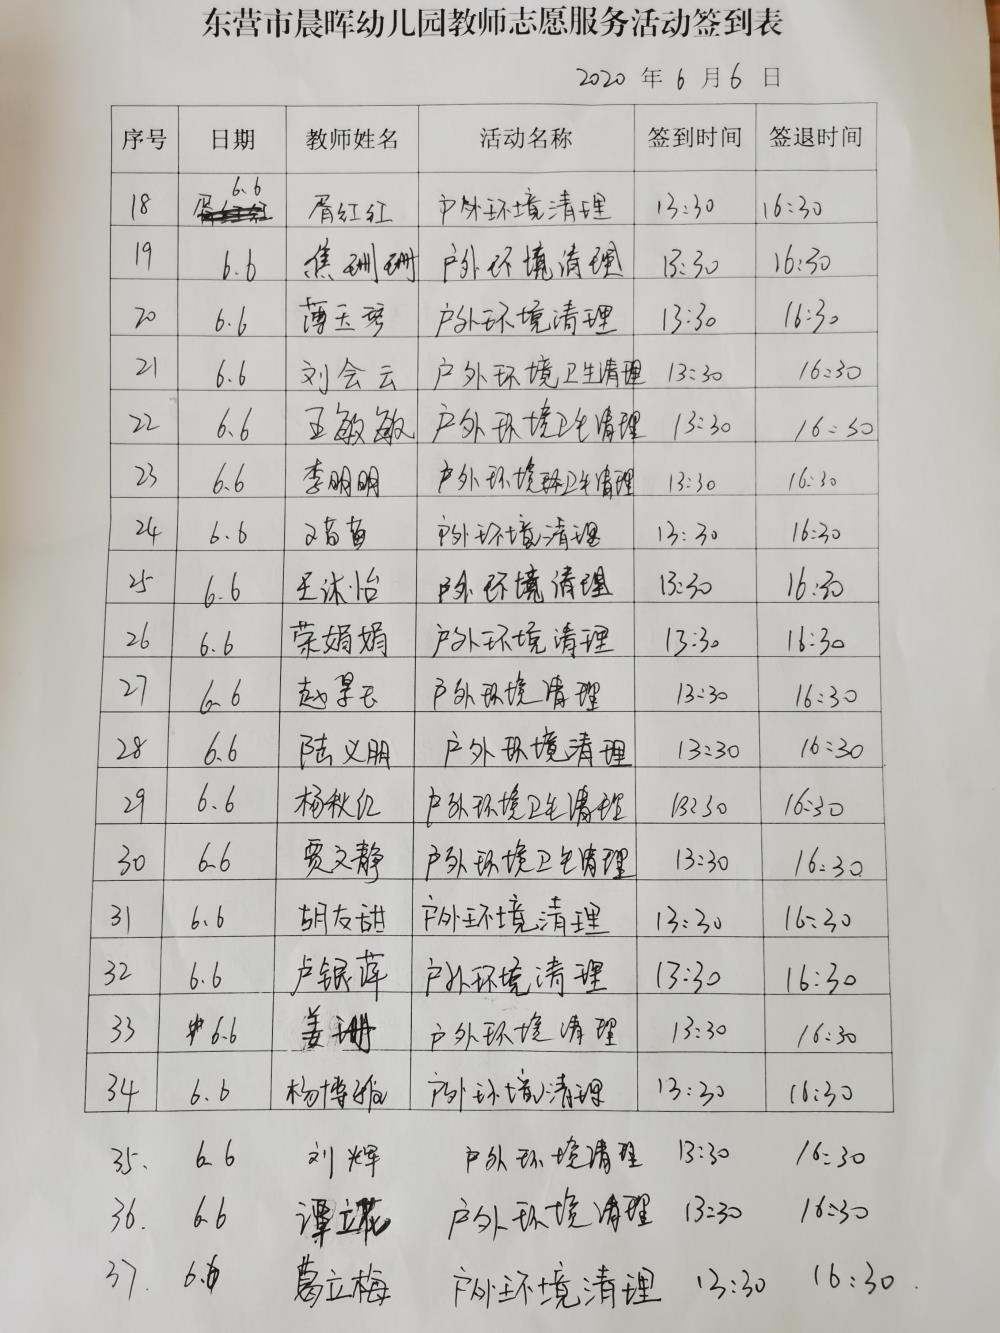 东营市晨晖幼儿园教师志愿服务活动签到表
2020 年 6 月 6 日
序号 日期 教师姓名 活动名称 签到时间 签退时间
18 6.6 胥红红 户外环境清理 13:30 16:30
19 6.6 焦珊珊 户外环境清理 13:30 16:30
20 6.6 薄玉琴 户外环境清理 13:30 16:30
21 6.6 刘会云 户外环境卫生清理 13:30 16:30
22 6.6 王敏敏 户外环境卫生清理 13:30 16:30
23 6.6 李明明 户外环境卫生清理 13:30 16:30
24 6.6 户外环境清理 13:30 16:30
25 6.6 王沐怡 户外环境清理 13:30 16:30
26 6.6 荣娟娟 户外环境清理 13:30 16:30
27 6.6 户外环境清理 13:30 16:30
28 6.6 陆义朋 户外环境清理 13:30 16:30
29 6.6 杨秋红 户外环境卫生清理 13:30 16:30
30 6.6 贾文静 户外环境卫生清理 13:30 16:30
31 6.6 胡友甜 户外环境清理 13:30 16:30
32 6.6 卢银萍 户外环境清理 13:30 16:30
33 6.6 姜珊 户外环境清理 13:30 16:30
34 6.6 杨博雅 户外环境清理 13:30 16:30
35. 6.6 刘辉 户外环境清理 13:30 16:30
36. 6.6 谭立花 户外环境清理 13:30 16:30
37. 6.6 葛立梅 户外环境清理 13:30 16:30